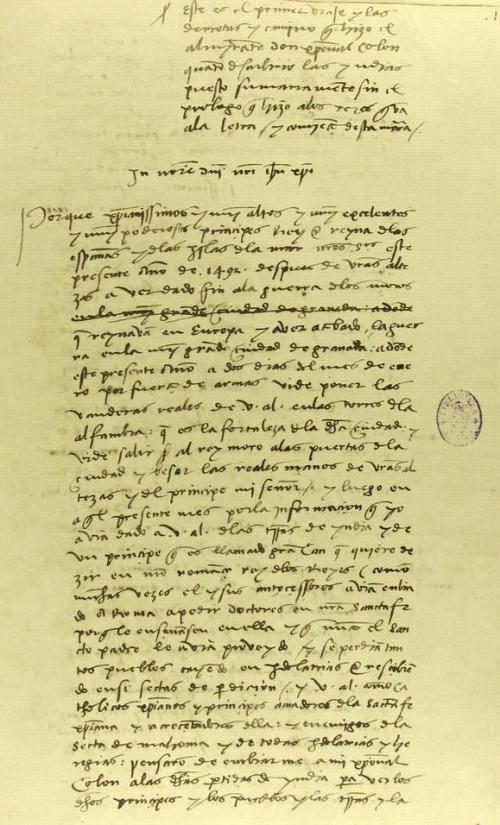 este es el primer viaje y las
derrotas y camino q hizo el
almirate don xpoval Colon
quado descubrio las yndias
puesto sumariamete sin el
prologo q hizo alos reyes q va
ala letra / y comieça desta manera /.
In nore dni nri ihu xpi
Porque xpianissimos y muy altos y muy excelentes
y muy poderosos principes Rey e reyna delas
españas y delas yslas dela mar nros sres este
presente Año de .1492. despues de vras alte
zas aver dado fin ala guerra delos moros
enla muy grade ciudad de granada: adode
q reynavan en Europa y aver acabado la guer
ra enla muy grade ciudad de granada: adode
este presente Año a dos dias del mes de ene
ro por fuerça de armas vide poner las
vanderas reales de v. al. enlas torres dla
alfambra: q es la fortaleza dla dha ciudad: y
vide salir al rey moro alas puertas dla
ciudad y besar las reales manos de vras al
tezas y del principe mi señor /. y luego en
aql presente mes por la informacion q yo
avia dado a v. al. dlas trras de yndia y de
un principe q es llamado gra Can q quiere de
zir en nro romançe rey dlos Reyes / como
muchas vezes el y sus antecessores avia enbia
do a Roma a pedir doctores en nra sancta fe
porq le enseñasen en ella y q nuca el san
cto padre le avia proveydo / y se perdia tan
tos pueblos cayedo en ydolatrias e rescibien
do en si sectas de perdicion /. y v. al. como ca
tholicos xpianos y principes amadores dla sacta fe
xpiana y acrecetadores dlla: y enemigos dla
secta de mahoma y de todas ydolatrias y he
regias: pensaro de enbiarme a mi xpoval
Colon alas dhas ptidas de yndia pa ver los
dhos principes y los pueblos y las trras y la